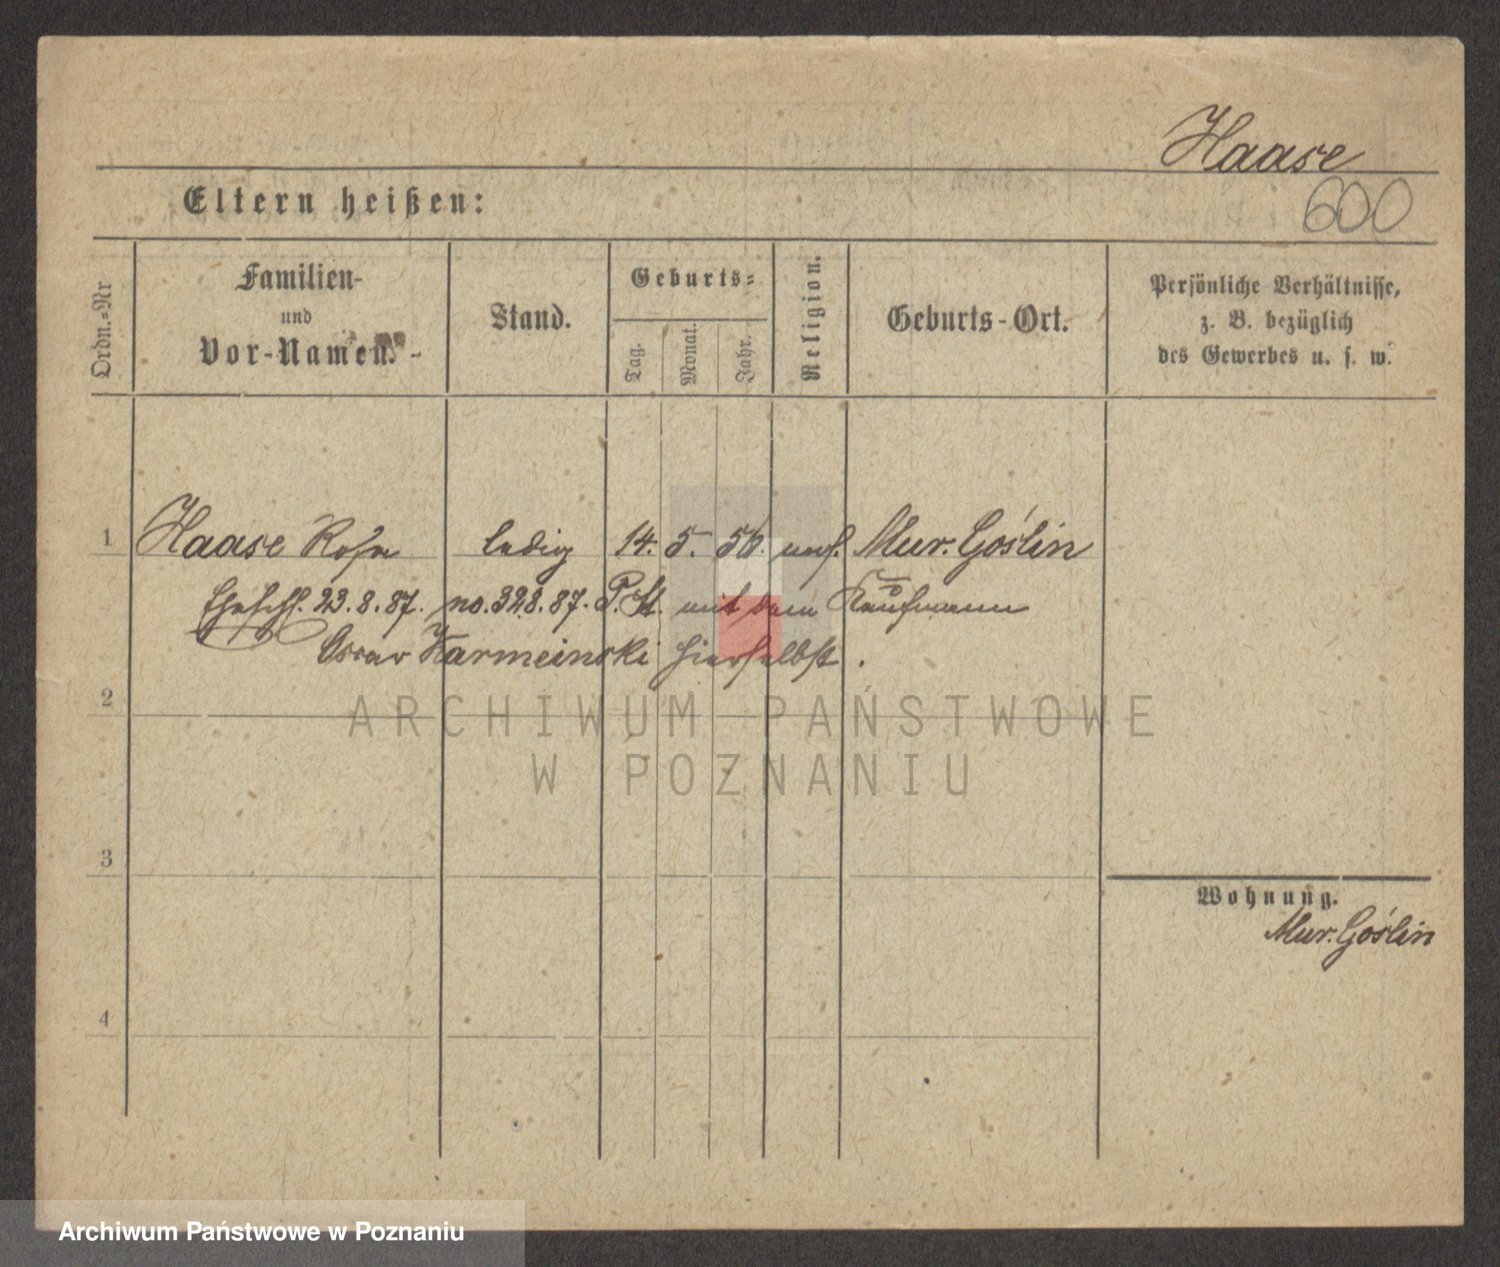 Haase
Eltern heißen:
600
Ordn.-Nr
Familien-
und
Vor-Namen.
Stand.
Geburts-
Tag.
Monat.
Jahr.
Religion.
Geburts-Ort.
Persönliche Verhältnisse,
z. B. bezüglich
des Gewerbes u. s. w.
1 Haase Rosa ledig 14. 5. 56. mos. Mur. Goślin
Eheschl. 23. 8. 87. no. 328. 87. P. St. mit dem Kaufmann
Oscar Karmeinski hierselbst.
2
ARCHIWUM PAŃSTWOWE
W POZNANIU
3
Wohnung.
Mur. Goślin
4
Archiwum Państwowe w Poznaniu